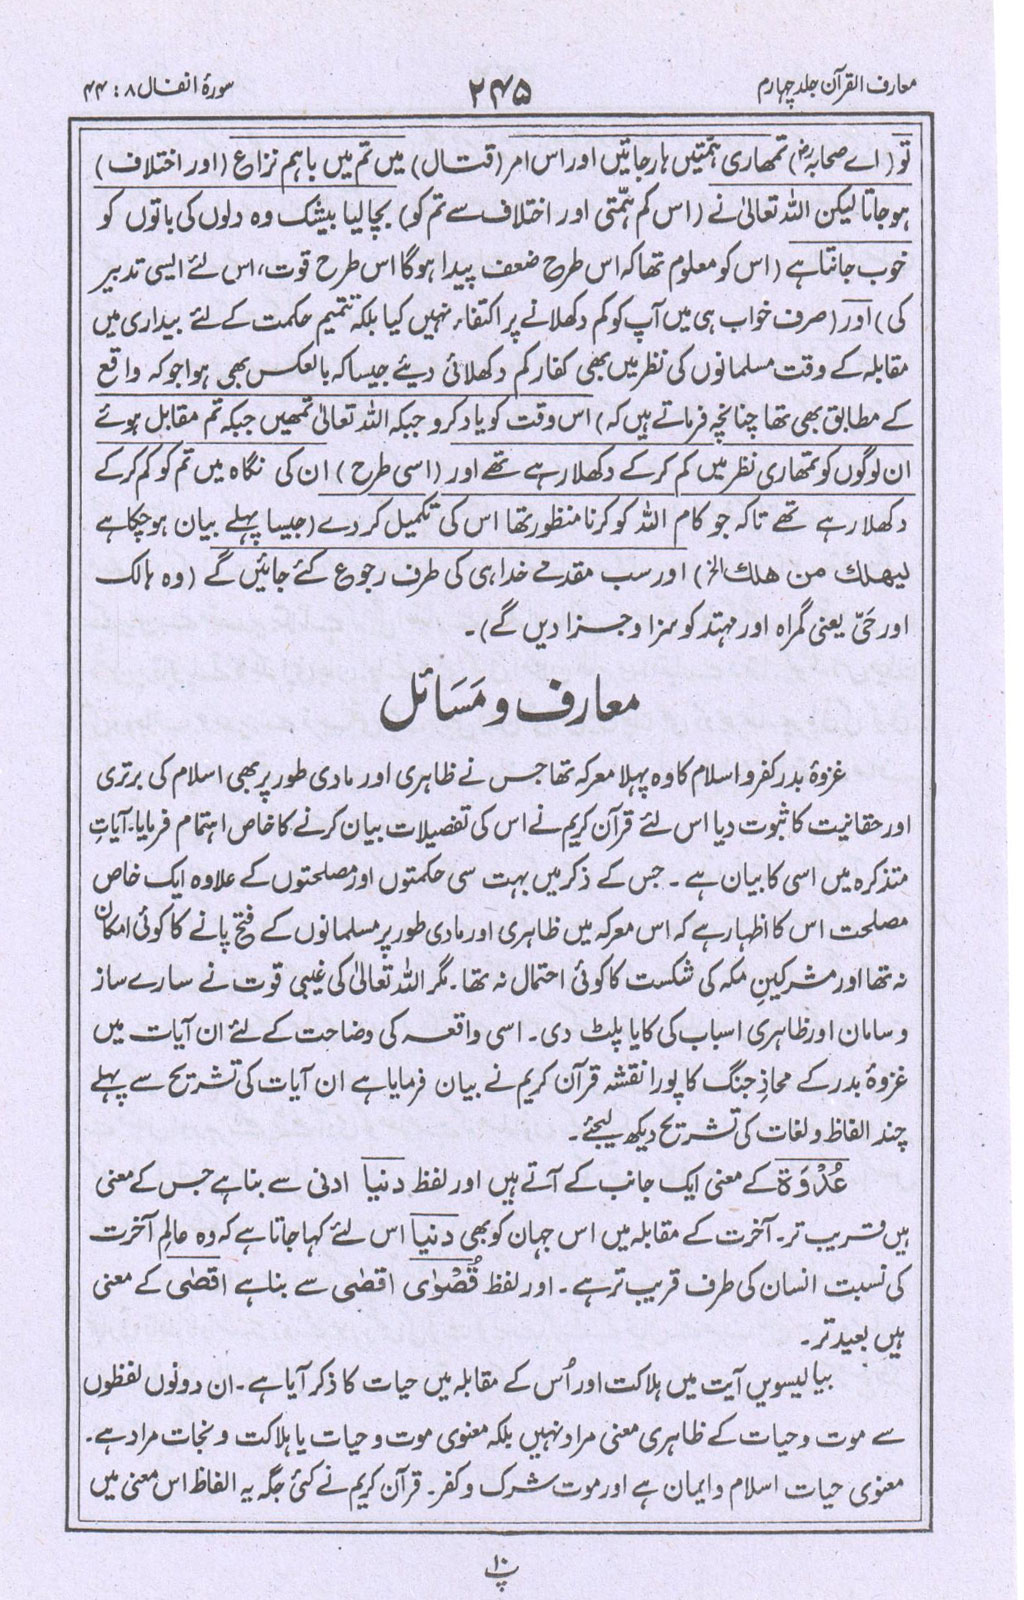 معارف القرآن جلد چہارم
۲۴۵
سورۂ انفال ۸ : ۴۴
تو (اے صحابہؓ) تمھاری ہمتیں ہار جاتیں اور اس امر (قتال) میں تم میں باہم نزاع (اور اختلاف)
ہو جاتا لیکن اللہ تعالیٰ نے (اس کم ہمّتی اور اختلاف سے تم کو) بچا لیا بیشک وہ دلوں کی باتوں کو
خوب جانتا ہے (اس کو معلوم تھا کہ اس طرح ضعف پیدا ہوگا اس طرح قوت، اس لئے ایسی تدبیر
کی) اور (صرف خواب ہی میں آپ کو کم دکھلانے پر اکتفاء نہیں کیا بلکہ تتمیم حکمت کے لئے بیداری میں
مقابلہ کے وقت مسلمانوں کی نظر میں بھی کفار کم دکھلائی دیئے جیسا کہ بالعکس بھی ہوا جو کہ واقع
کے مطابق بھی تھا چنانچہ فرماتے ہیں کہ) اس وقت کو یاد کرو جبکہ اللہ تعالیٰ تمھیں جبکہ تم مقابل ہوئے
ان لوگوں کو تمھاری نظر میں کم کر کے دکھلا رہے تھے اور (اسی طرح) ان کی نگاہ میں تم کو کم کر کے
دکھلا رہے تھے تاکہ جو کام اللہ کو کرنا منظور تھا اس کی تکمیل کر دے (جیسا پہلے بیان ہو چکا ہے
لیھلك من ھلك الخ) اور سب مقدمے خدا ہی کی طرف رجوع کئے جائیں گے (وہ ہالک
اور حَیّ یعنی گمراہ اور مہتد کو سزا و جزا دیں گے)۔
معارف و مَسَائل
غزوۂ بدر کفر و اسلام کا وہ پہلا معرکہ تھا جس نے ظاہری اور مادی طور پر بھی اسلام کی برتری
اور حقانیت کا ثبوت دیا اس لئے قرآن کریم نے اس کی تفصیلات بیان کرنے کا خاص اہتمام فرمایا۔ آیاتِ
متذکرہ میں اسی کا بیان ہے۔ جس کے ذکر میں بہت سی حکمتوں اور مصلحتوں کے علاوہ ایک خاص
مصلحت اس کا اظہار ہے کہ اس معرکہ میں ظاہری اور مادی طور پر مسلمانوں کے فتح پانے کا کوئی امکان
نہ تھا اور مشرکینِ مکہ کی شکست کا کوئی احتمال نہ تھا۔ مگر اللہ تعالیٰ کی غیبی قوت نے سارے ساز
و سامان اور ظاہری اسباب کی کایا پلٹ دی۔ اسی واقعہ کی وضاحت کے لئے ان آیات میں
غزوۂ بدر کے محاذِ جنگ کا پورا نقشہ قرآن کریم نے بیان فرمایا ہے ان آیات کی تشریح سے پہلے
چند الفاظ و لغات کی تشریح دیکھ لیجئے۔
عُدْوَة کے معنی ایک جانب کے آتے ہیں اور لفظ دنیا ادنی سے بنا ہے جس کے معنی
ہیں قریب تر۔ آخرت کے مقابلہ میں اس جہان کو بھی دنیا اس لئے کہا جاتا ہے کہ وہ عالمِ آخرت
کی نسبت انسان کی طرف قریب تر ہے۔ اور لفظ قُصْوٰی اقصٰی سے بنا ہے اقصٰی کے معنی
ہیں بعید تر۔
بیالیسویں آیت میں ہلاکت اور اُس کے مقابلہ میں حیات کا ذکر آیا ہے۔ ان دونوں لفظوں
سے موت و حیات کے ظاہری معنی مراد نہیں بلکہ معنوی موت و حیات یا ہلاکت و نجات مراد ہے۔
معنوی حیات اسلام و ایمان ہے اور موت شرک و کفر۔ قرآن کریم نے کئی جگہ یہ الفاظ اس معنی میں
پ۱۰